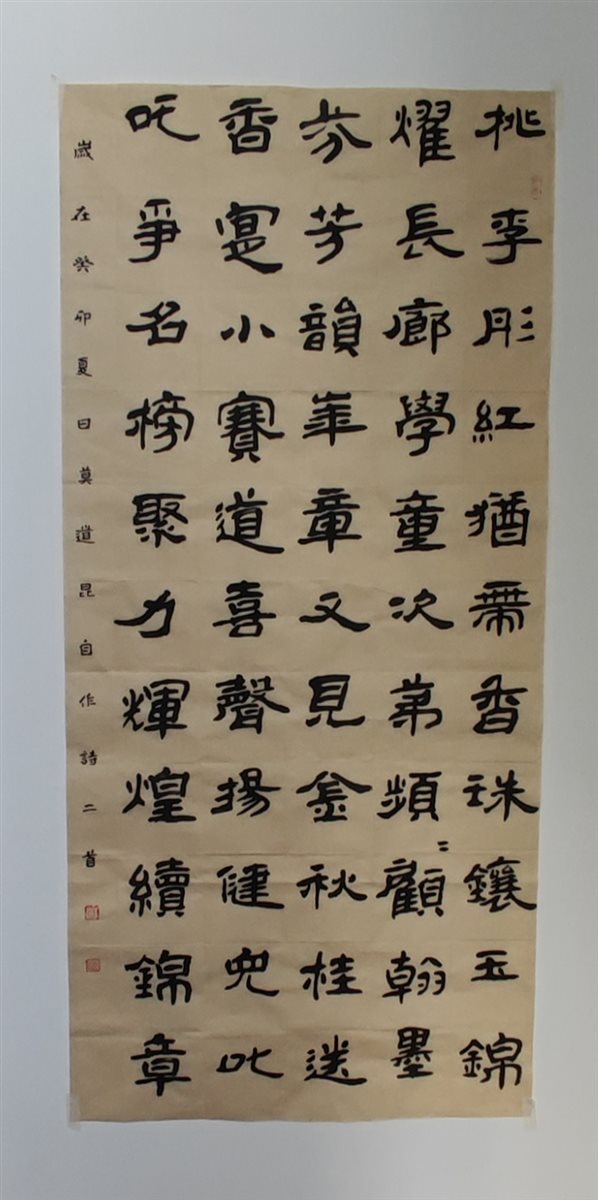 桃李彤紅猶帶香珠鑲玉錦
燿長廊學童次弟頻〻顧翰墨
芬芳韻華章又見金秋桂送
香寔小賽道喜聲揚健兒叱
吒爭名榜聚力輝煌續錦章
歲在癸卯夏日莫道昆自作詩二首